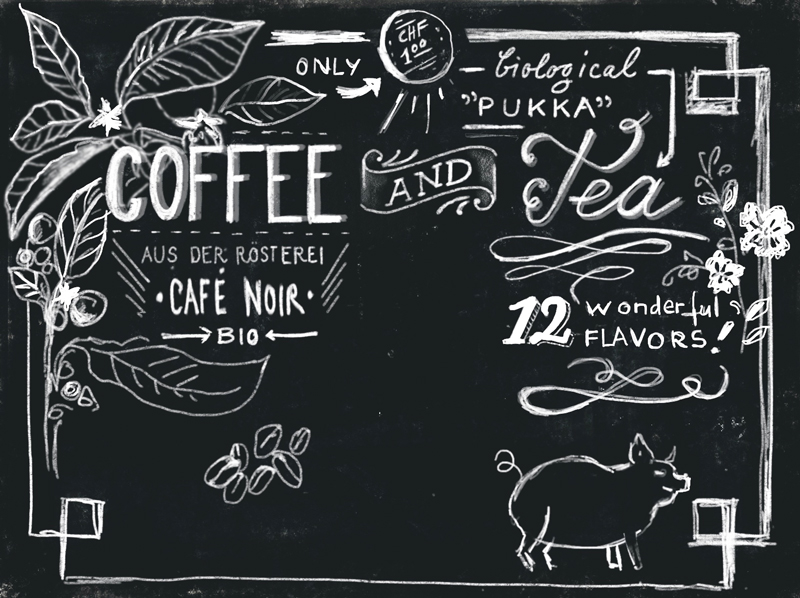 ONLY
CHF
1.00
– biological
"PUKKA"
COFFEE AND Tea
AUS DER RÖSTEREI
• CAFÉ NOIR •
BIO
12 wonderful
FLAVORS!